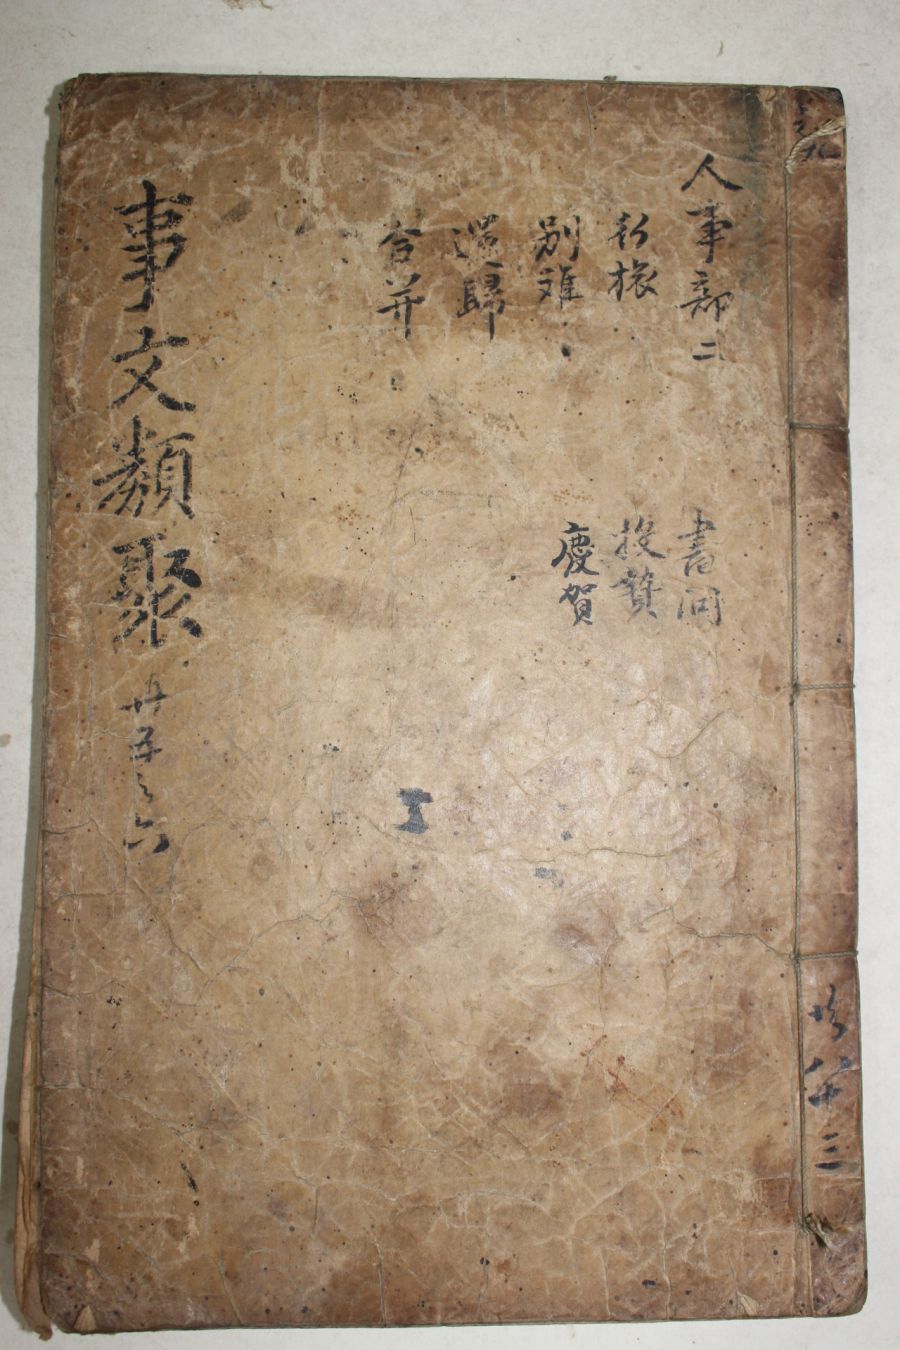 人事部二
行旅
別離
還歸
合并
書問
投贄
慶賀
事文類聚 廿五之六
共八十三